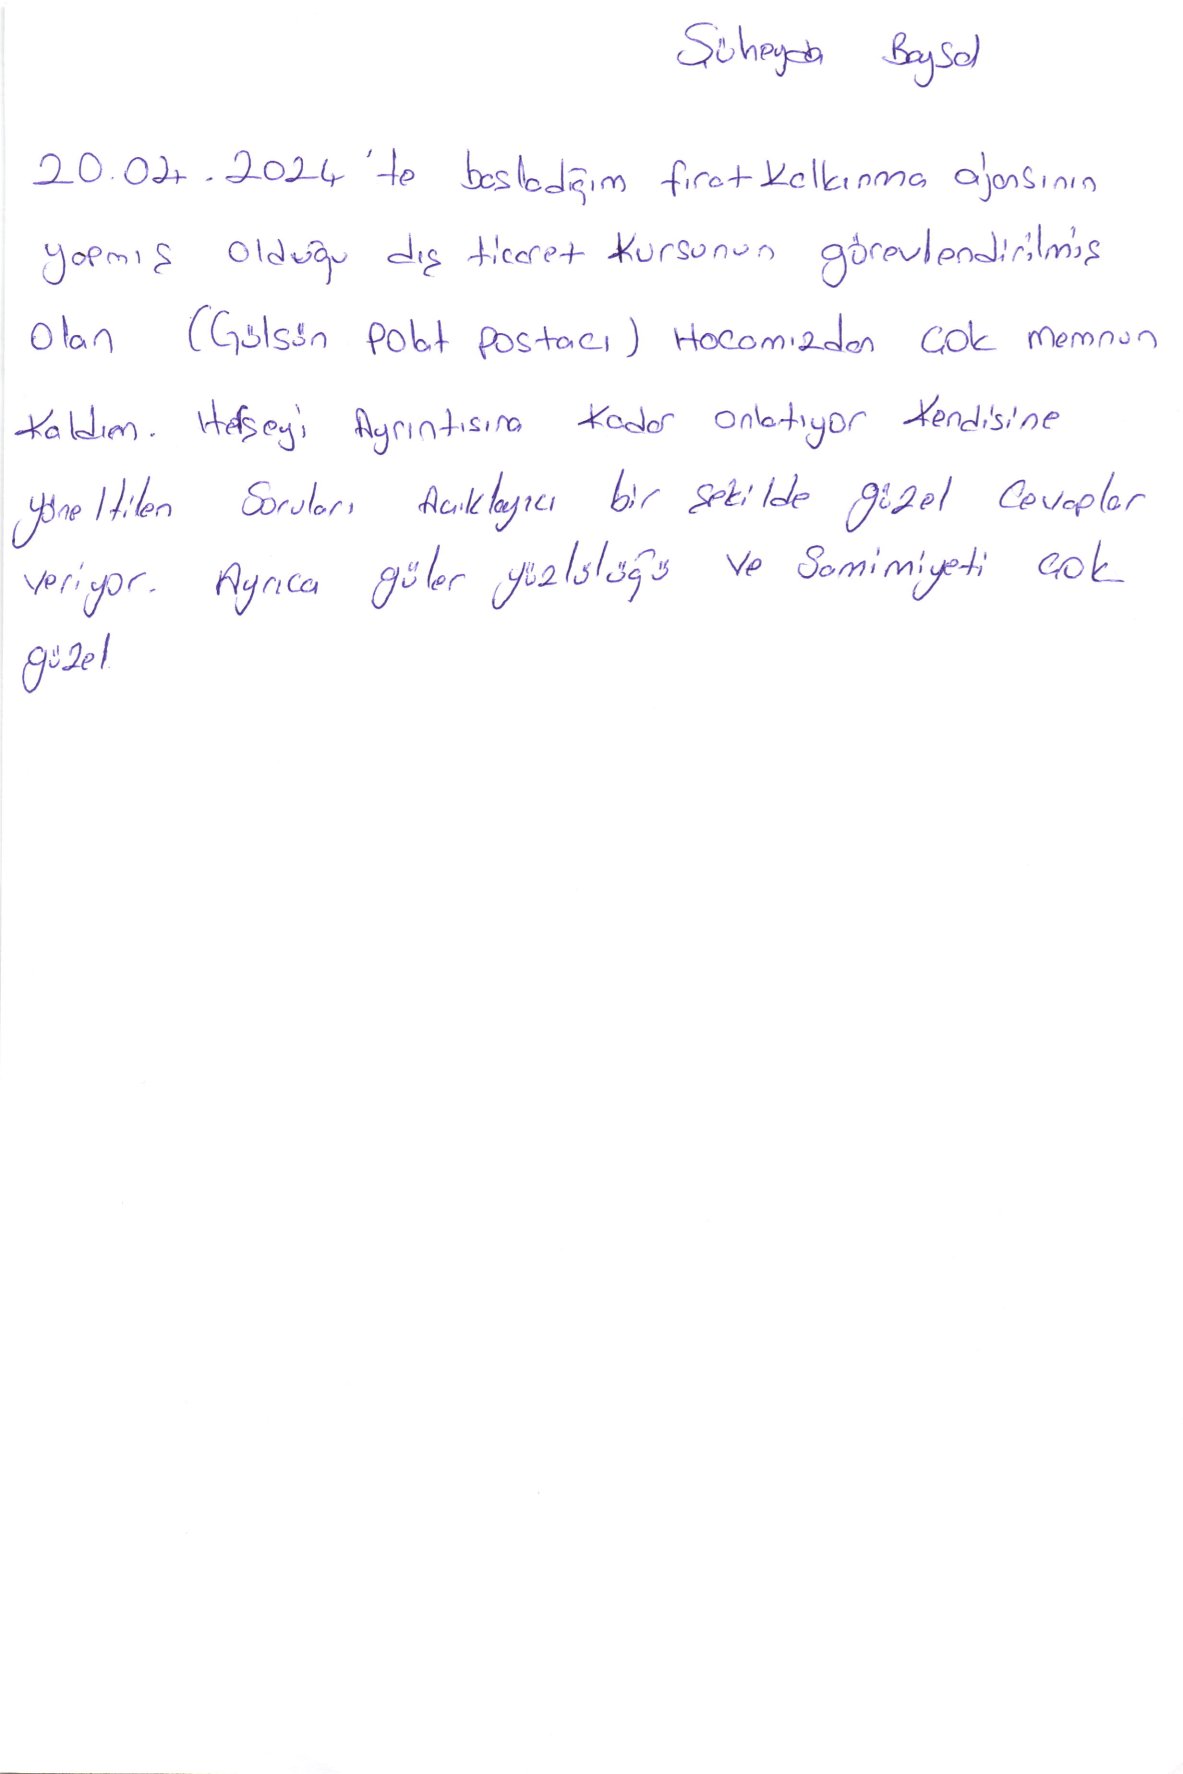 Süheyda Baysal
20.04.2024'te başladığım fırat Kalkınma ajansının
yapmış olduğu dış ticaret Kursunun görevlendirilmiş
olan (Gülsün Polat Postacı) Hocamızdan çok memnun
Kaldım. Herşeyi Ayrıntısına Kadar anlatıyor Kendisine
yöneltilen Soruları Açıklayıcı bir şekilde güzel Cevaplar
veriyor. Ayrıca güler yüzlülüğü ve Samimiyeti çok
güzel